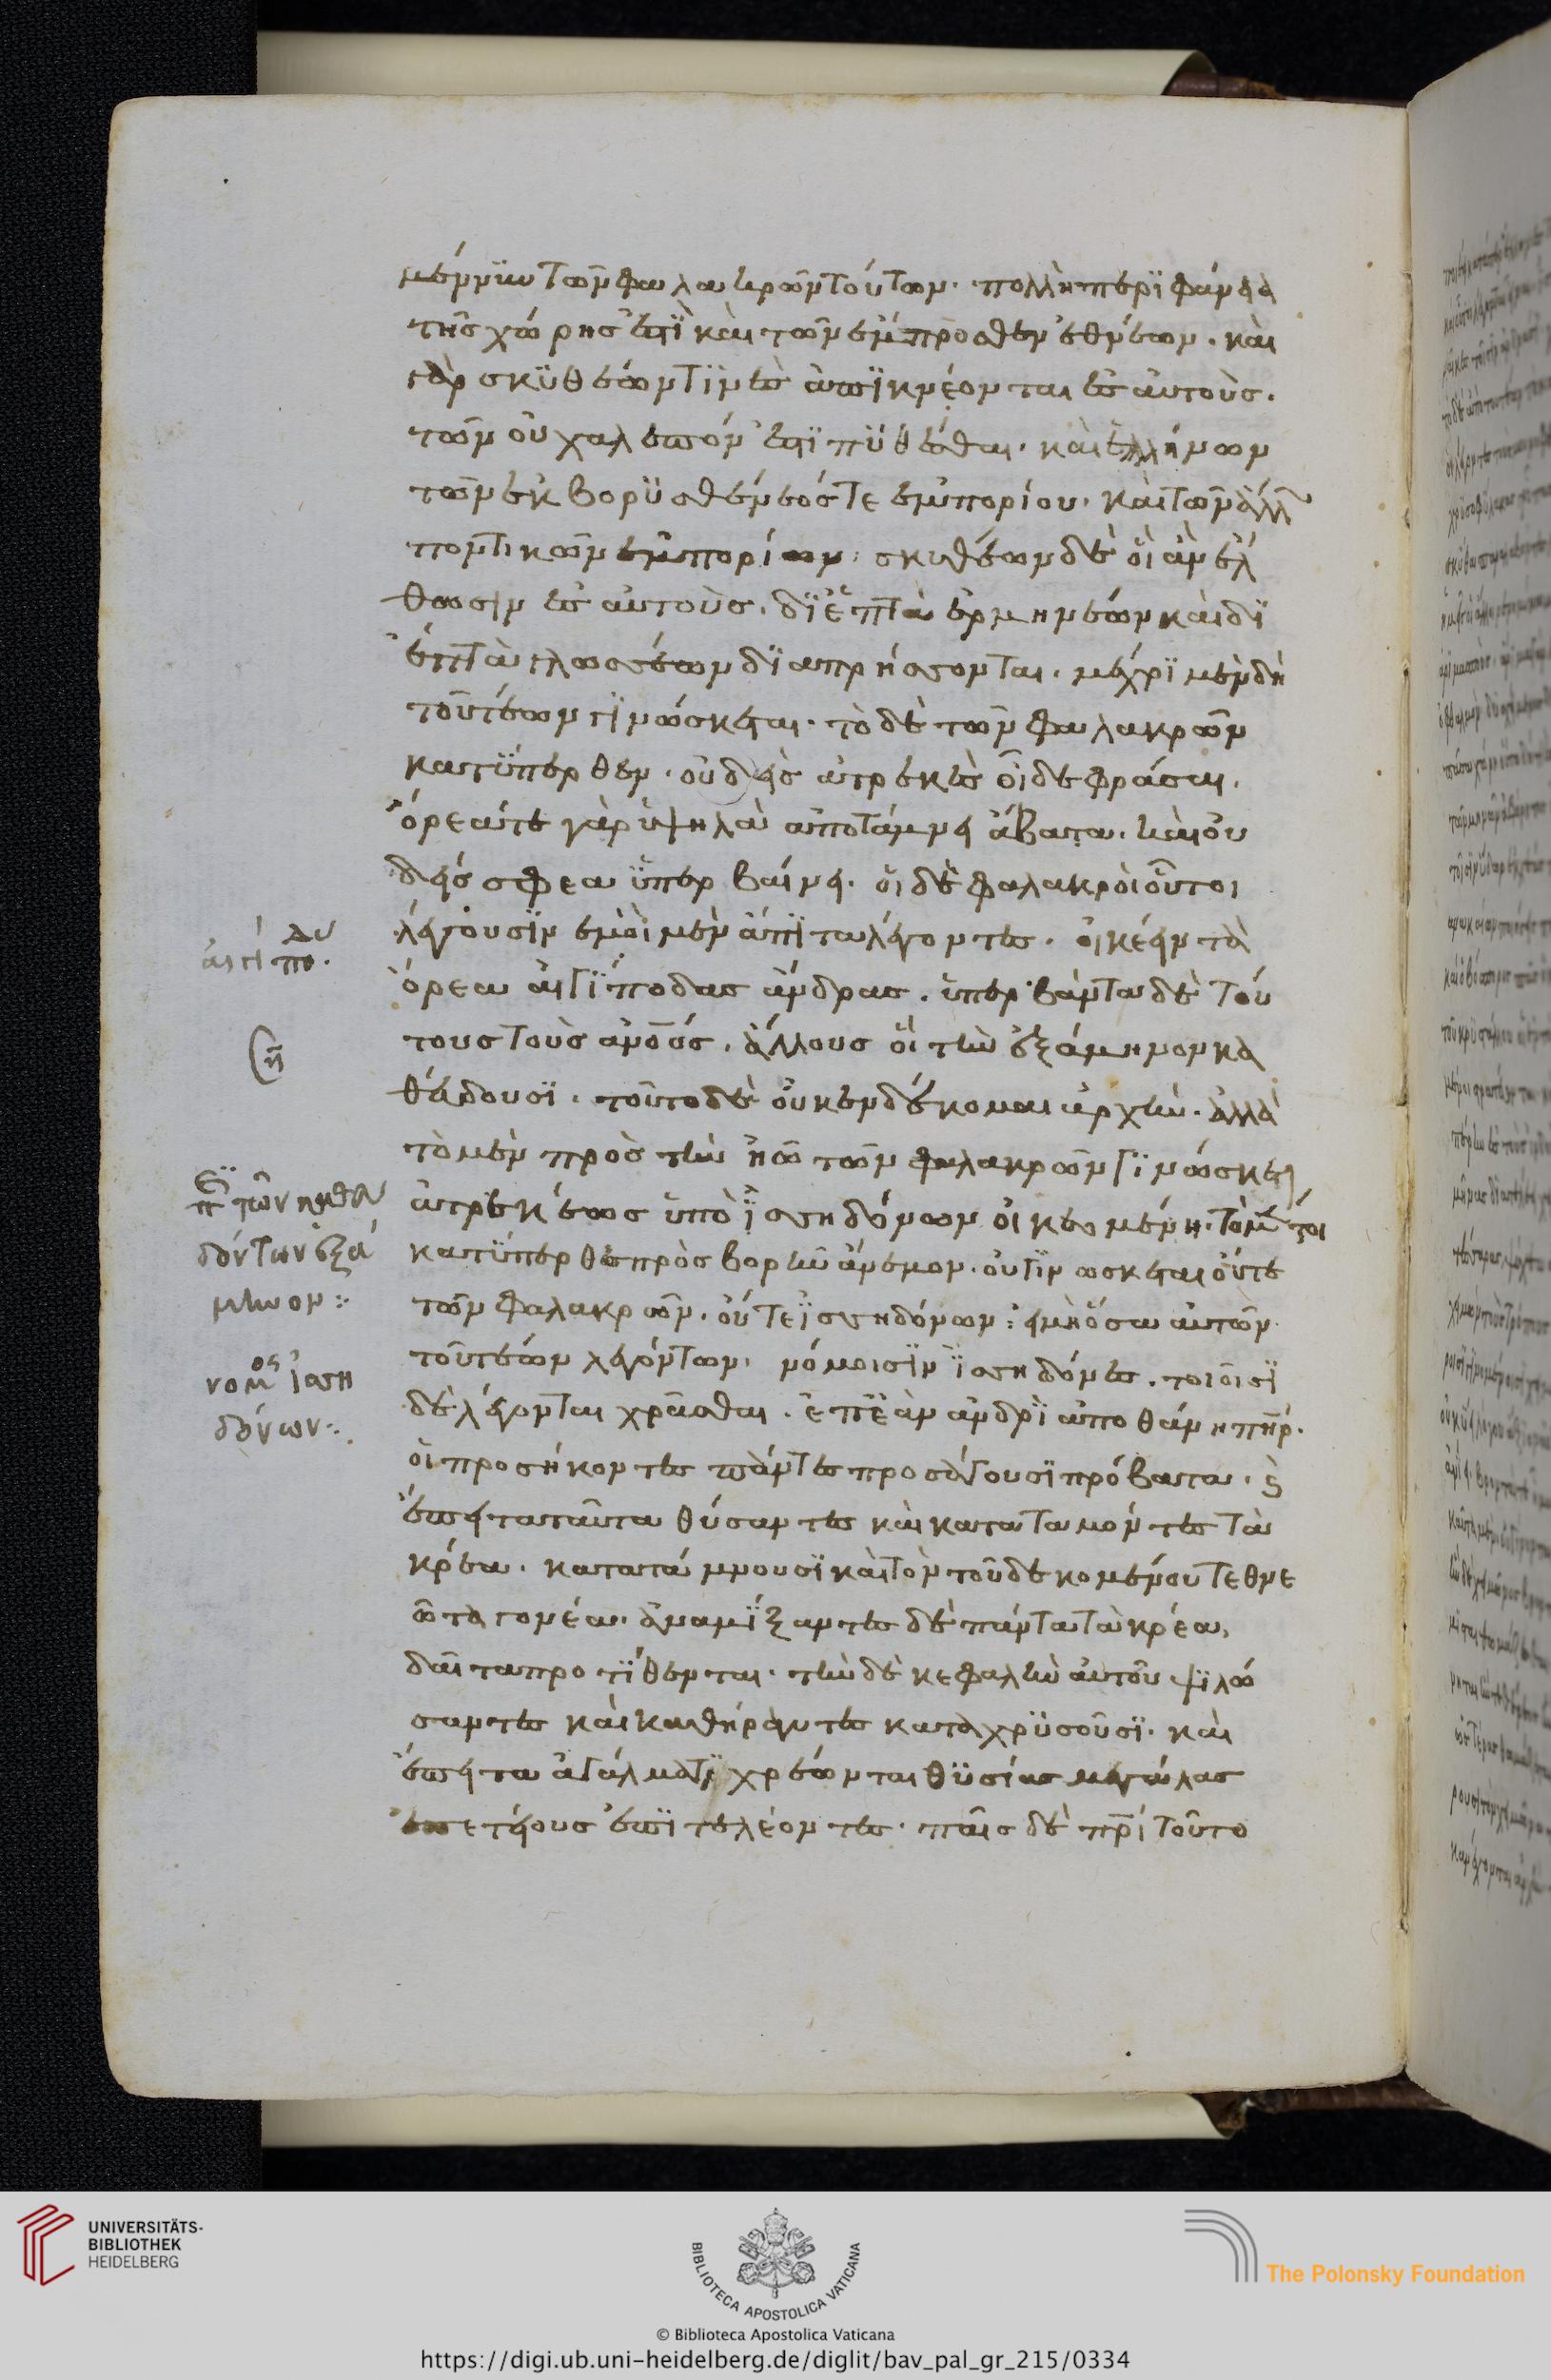 μέν νυν τῶν φαλακρῶν τούτων. πολλὴ περιφάνεια
τῆς χώρης ἐστὶ καὶ τῶν ἔμπροσθεν ἐθνέων. καὶ
γὰρ σκυθέων τινὲς ἀπικνέονται ἐς αὐτούς.
τῶν οὐ χαλεπόν ἐστι πυθέσθαι. καὶ ἑλλήνων
τῶν ἐκ βορυσθένεός τε ἐμπορίου. καὶ τῶν ἄλλ
ποντικῶν ἐμπορίων. σκυθέων δὲ οἳ ἂν ἔλ
θωσιν ἐς αὐτούς. δι ἑπτὰ ἑρμηνέων καὶ δι
ἑπτὰ γλωσσέων διαπρήσσονται. μέχρι μὲν δὴ
τουτέων γινώσκεται. τὸ δὲ τῶν φαλακρῶν
κατύπερθεν. οὐδεὶς ἀτρεκὲς οἶδε φράσαι.
ὄρεά τε γὰρ ὑψηλὰ ἀποτάμνει ἄβατα. καὶ οὐ
δείς σφεα ὑπερβαίνει. οἱ δὲ φαλακροὶ οὗτοι
λέγουσιν ἐμοὶ μὲν ἄπιστα λέγοντες. οἰκέειν τὰ
ὄρεα αἰγίποδας ἄνδρας. ὑπερβάντα δὲ τού
τους τοὺς ἀνους. ἄλλους οἳ τὴν ἑξάμηνον κα
θεύδουσι. τοῦτο δὲ οὐκ ἐνδέκομαι ἀρχήν. ἀλλὰ
τὸ μὲν πρὸς τὴν ἠῶ τῶν φαλακρῶν γινώσκεται
ἀτρεκέως ὑπὸ ἰσσηδόνων οἰκεομένη. τὸ μέντοι
κατύπερθε πρὸς βορῆν ἄνεμον. οὐ γινώσκεται οὔτε
τῶν φαλακρῶν. οὔτε ἰσσηδόνων. εἰ μὴ ὅσα αὐτῶν
τουτέων λεγόντων. νόμοισιν ἰσσηδόνες. τοιοῖσι
δὲ λέγονται χρᾶσθαι. ἐπεὰν ἀνδρὶ ἀποθάνη πηρ.
οἱ προσήκοντες πάντες προσάγουσι πρόβατα. καὶ
ἔπειτα ταῦτα θύσαντες καὶ καταταμόντες τὰ
κρέα. κατατάμνουσι καὶ τὸν τοῦ δεκομένου τεθνε
ῶτα γονέα. ἀναμίξαντες δὲ πάντα τὰ κρέα,
δαῖτα προτίθενται. τὴν δὲ κεφαλὴν αὐτοῦ ψιλώ
σαντες καὶ καθήραντες καταχρυσοῦσι. καὶ
ἔπειτα ἀγάλματι χρέωνται θυσίας μεγάλας
ἐπετείους ἐπιτελέοντες. παῖς δὲ πρὶ τοῦτο
αἰγίπο.
π τῶν καθευ
δόντων ἑξά
μηνον :
νομος ἰσση
δόνων :
UNIVERSITÄTS-
BIBLIOTHEK
HEIDELBERG
BIBLIOTECA APOSTOLICA VATICANA
The Polonsky Foundation
© Biblioteca Apostolica Vaticana
https://digi.ub.uni-heidelberg.de/diglit/bav_pal_gr_215/0334